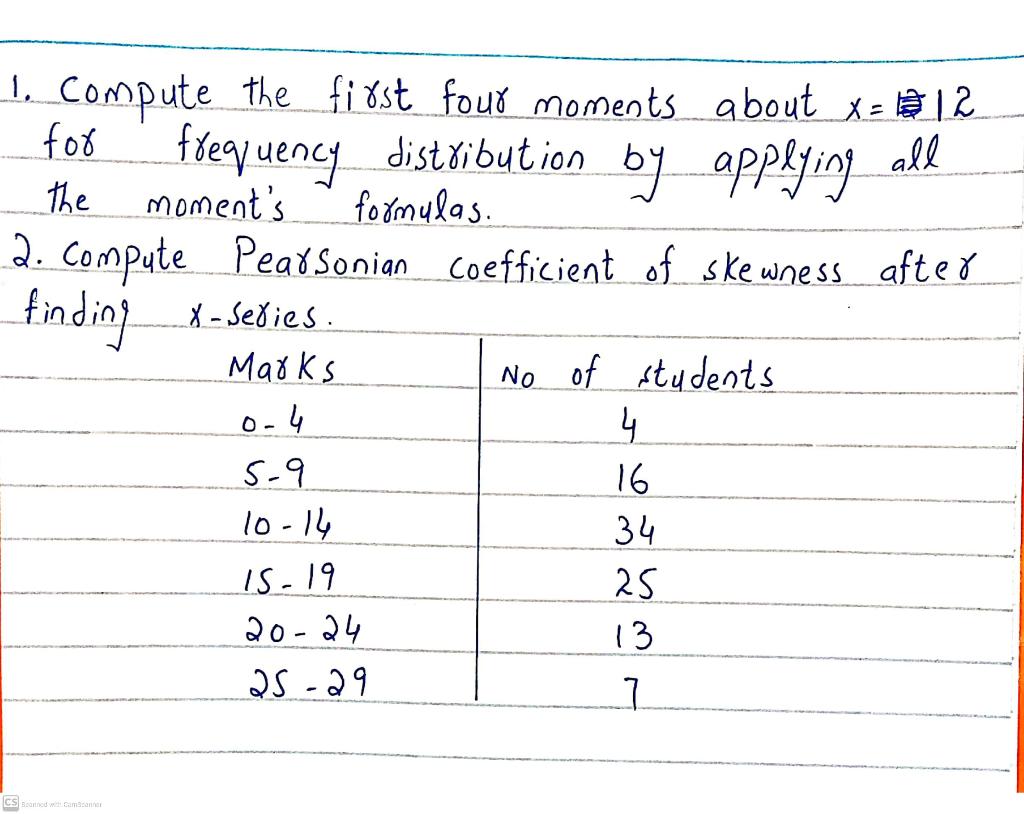 1. Compute the first four moments about x = 12
for frequency distribution by applying all
the moment's formulas.
2. Compute Pearsonian coefficient of skewness after
finding x-series.
Marks No of students
0-4 4
5-9 16
10-14 34
15-19 25
20-24 13
25-29 7
CS Scanned with CamScanner